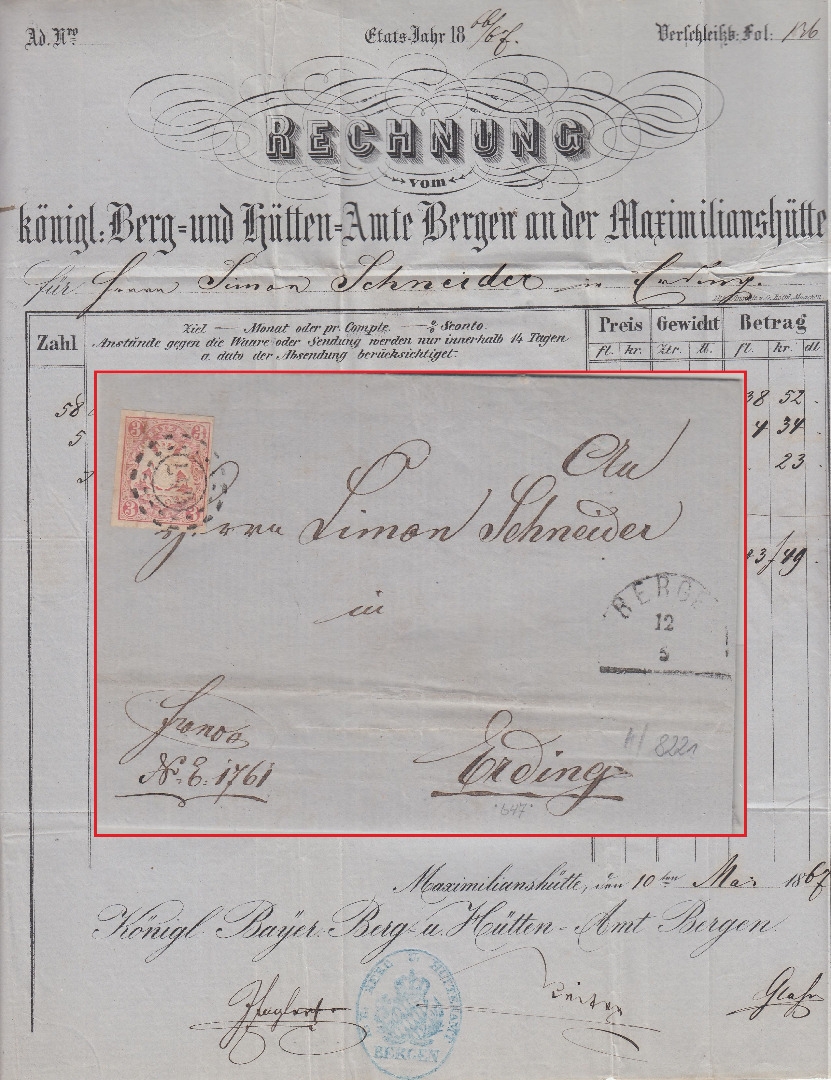 Ad. Nro
Etats-Jahr 1866/67.
Verschleißb: Fol: 136
RECHNUNG
vom
königl: Berg- und Hütten-Amte Bergen an der Maximilianshütte
für Herrn Simon Schneider in Erding.
Zahl
Ziel — Monat oder pr. Compte. — % Sconto.
Anstände gegen die Waare oder Sendung werden nur innerhalb 14 Tagen
a. dato der Absendung berücksichtiget.
Preis Gewicht Betrag
fl. kr. Ztr. ℔. fl. kr. dl
58 38 52.
5 4 34.
23.
49.
3 3
3 3
An
Herrn Simon Schneider
in
BERGEN
12
5
Franco
No. E. 1761
Erding
8221
*647*
Maximilianshütte, den 10ten Mai 1867
Königl. Bayer. Berg u. Hütten-Amt Bergen.
BERG U. HÜTTENAMT
BERGEN